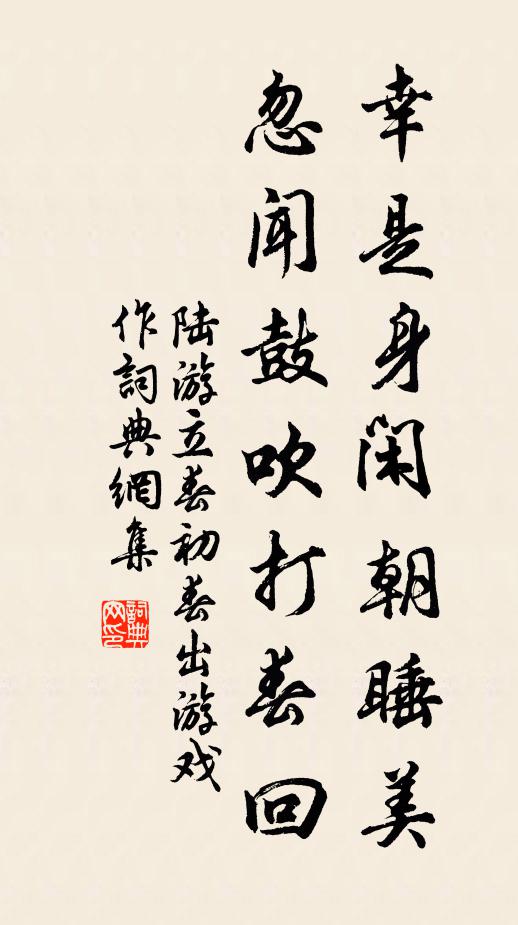 幸是身閑朝睡美
忽聞鼓吹打春回
陆游立春初春出游戏
作詞典網集
詞典
网印